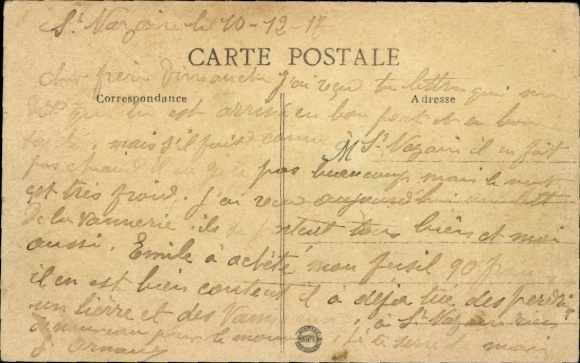 St Nazaire le 10-12-17
CARTE POSTALE
Correspondance
Adresse
cher frère Dimanche j'ai reçu ta lettre qui me
que tu est arrivé en bon port et en bon
mais s'il fait comme A St Nazaire il en fait
pas chaud il ne gele pas beaucoup mais le vent
est très froid. j'ai reçu aujourd'hui
de la vannerie. ils se portent tous bien et moi
aussi. Emile à acheté mon fusil 90 francs
il en est bien content il à déjà tué des perdrix
un lièvre et des à St Nazaire rien
de nouveau pour le moment Je te serre main